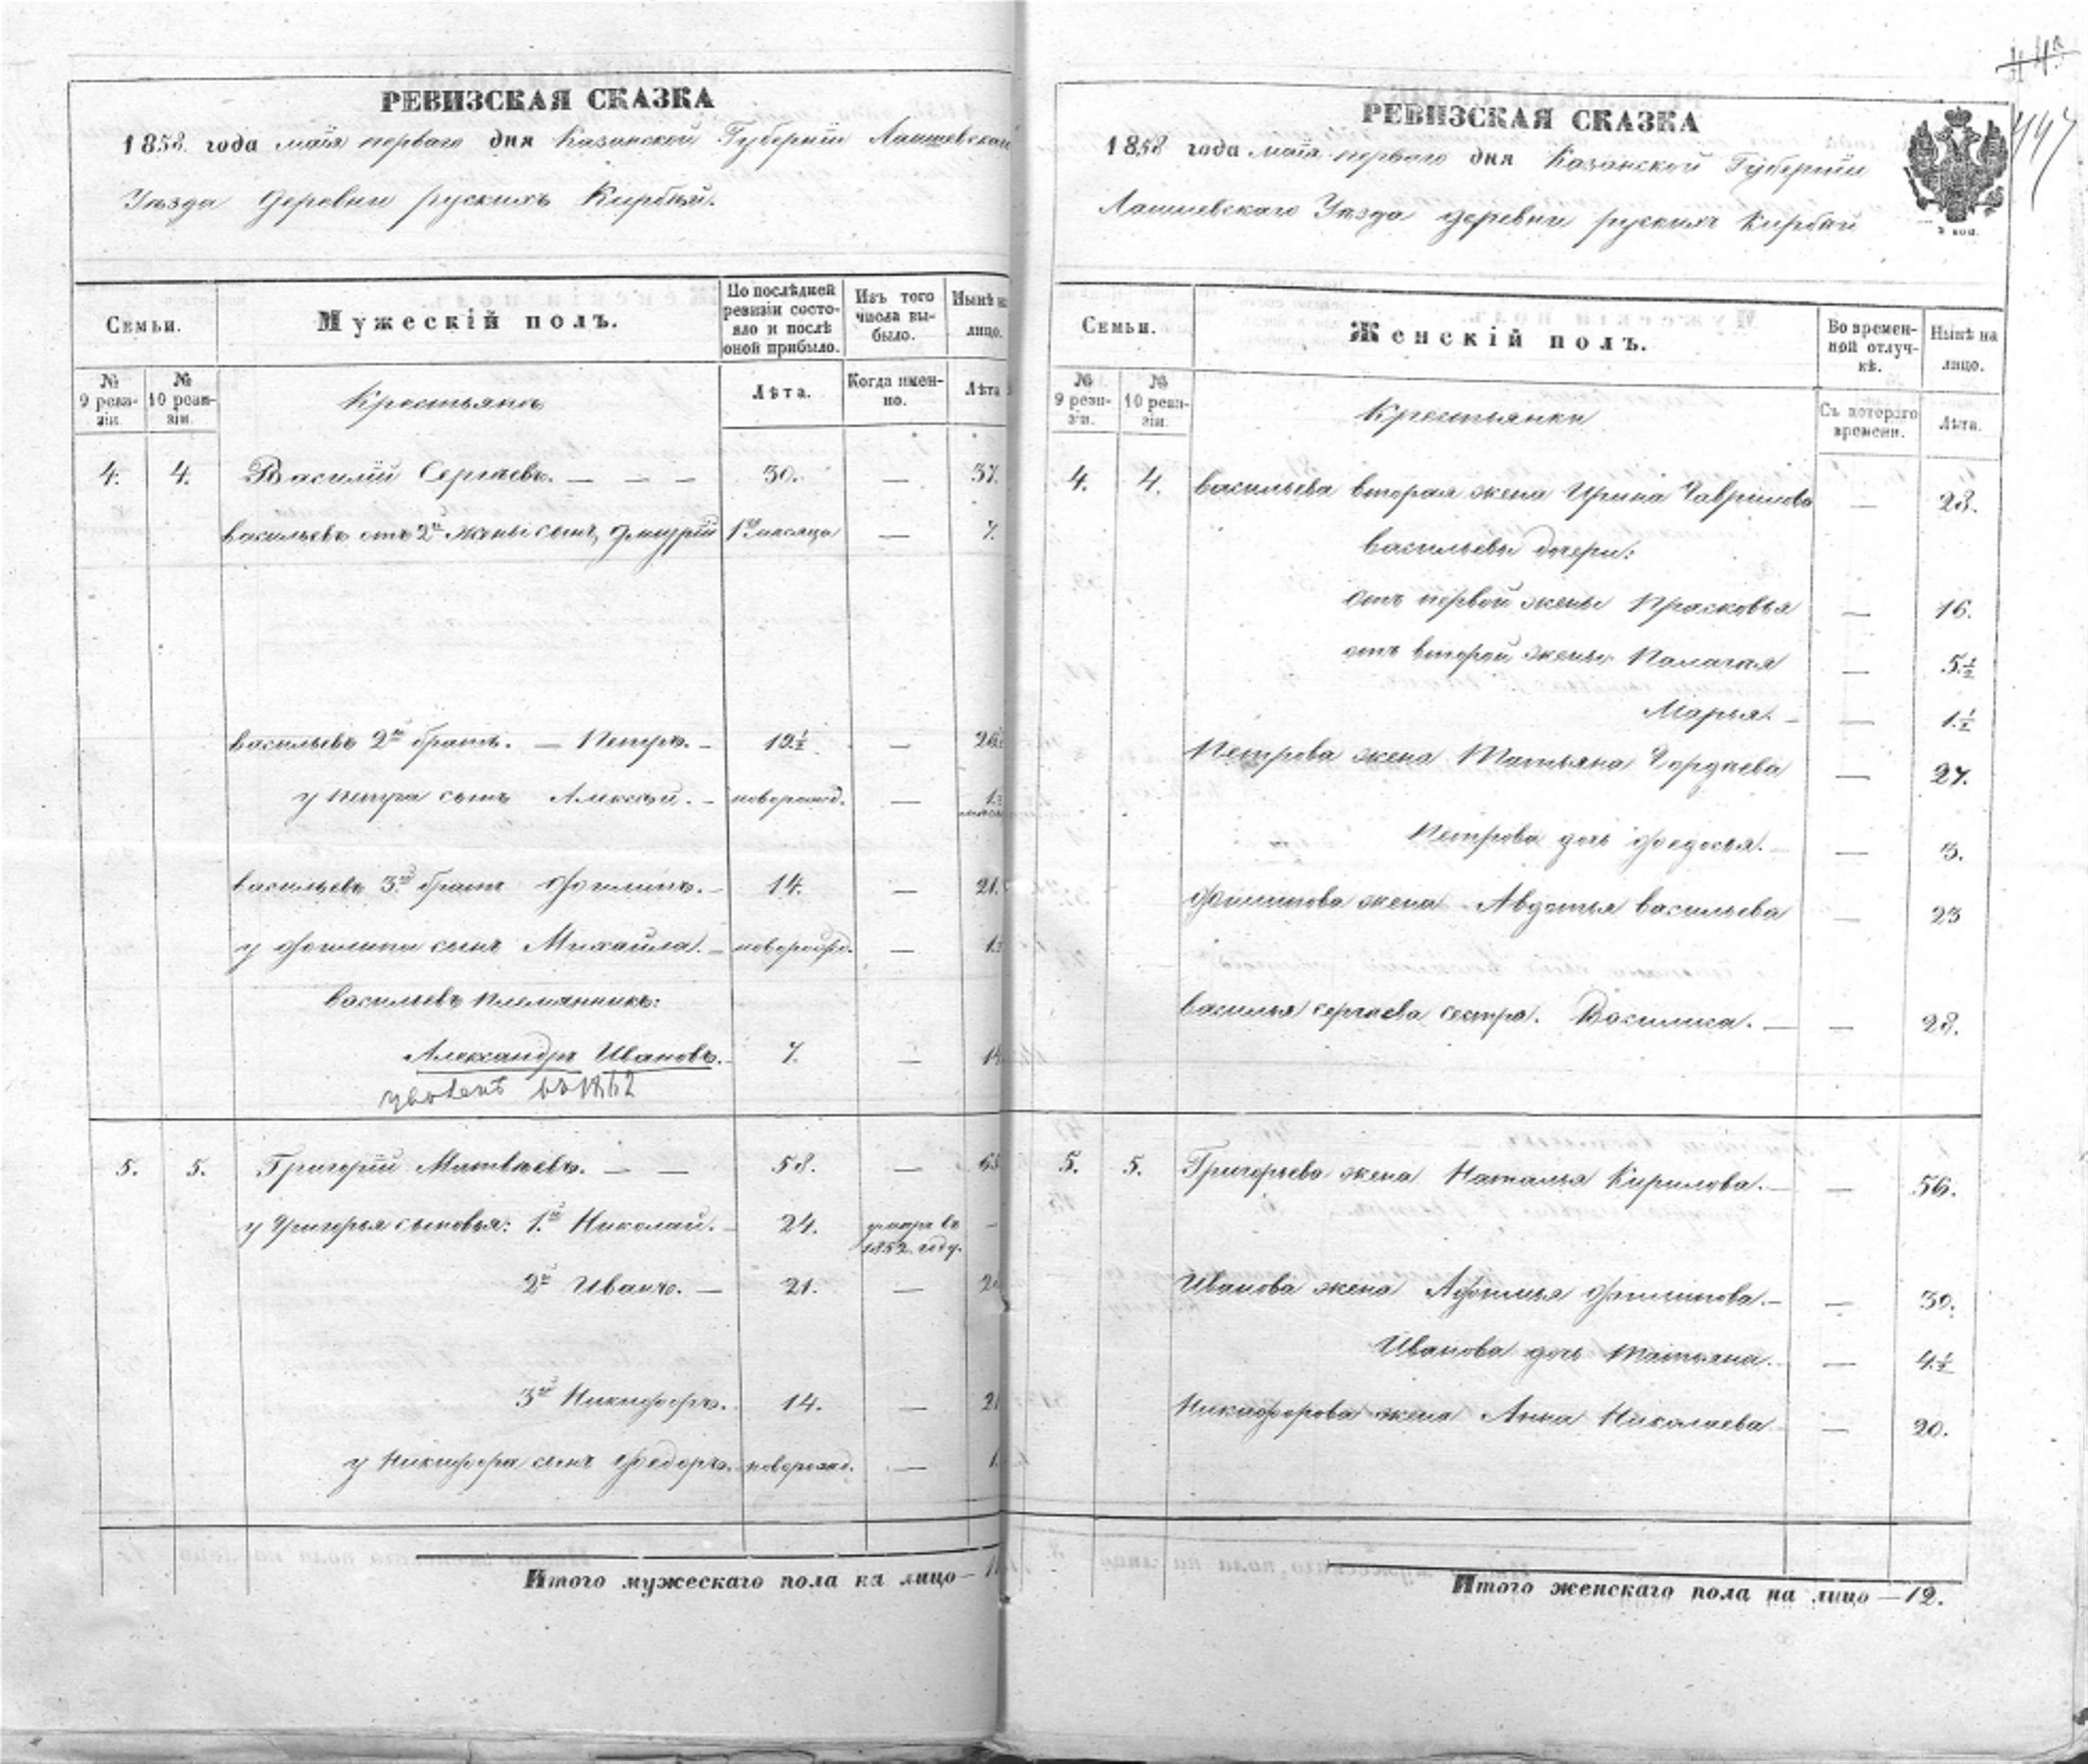 РЕВИЗСКАЯ СКАЗКА
1858 года маія перваго дня Казанской Губерніи Лаишевскаго
Уѣзда деревни рускихъ Кирбѣй.
Семьи.
Мужескій полъ.
По послѣдней ревизіи состояло и послѣ оной прибыло.
Изъ того числа выбыло.
Нынѣ на лицо.
№ 9 ревизіи.
№ 10 ревизіи.
Крестьянъ
Лѣта.
Когда именно.
Лѣта
4. 4. Василій Сергѣевъ. — — — 30. — 37.
васильевъ отъ 2й жены сынъ, Дмитрій 1го мѣсяца — 7.
васильевъ 2й братъ. — Петръ. — 19½ — 26
у петра сынъ Алексѣй. — новорожд. — 1.
васильевъ 3й братъ Филипъ. — 14. — 21.
у Филипа сынъ Михайла. — новорожд. — 1.
васильевъ племянникъ:
Александръ Ивановъ. — 7. — 14
уволенъ въ 1862
5. 5. Григорій Матвѣевъ. — — 58. — 65
у Григорья сыновья: 1й Николай. — 24. умеръ въ 1852. году. —
2й Иванъ. — 21. — 2
3й Никифоръ. 14. — 21
у Никифора сынъ Федоръ. новорожд. — 1.
Итого мужескаго пола на лицо — 11
44
447
РЕВИЗСКАЯ СКАЗКА
1858 года маія перваго дня Казанской Губерніи
Лаишевскаго Уѣзда деревни рускихъ Кирбѣй
Семьи.
Женскій полъ.
Во временной отлучкѣ.
Нынѣ на лицо.
№ 9 ревизіи.
№ 10 ревизіи.
Крестьянки
Съ котораго времени.
Лѣта.
4. 4. васильева вторая жена Ирина Гаврилова — 28.
васильевы дочери:
отъ первой жены Прасковья — 16.
отъ второй жены Палагея — 5½
Марья. — — 1½
Петрова жена Татьяна Гордѣева — 27.
Петрова дочь Федосья. — — 3.
Филипова жена Авдотья васильева — 23
василья сергѣева сестра. Василиса. — — 28.
5. 5. Григорьева жена Наталья Кирилова. — — 56.
Иванова жена Афимья Филипова. — — 30.
Иванова дочь Татьяна. — 4½
Никифорова жена Анна Николаева — 20.
Итого женскаго пола на лицо — 12.